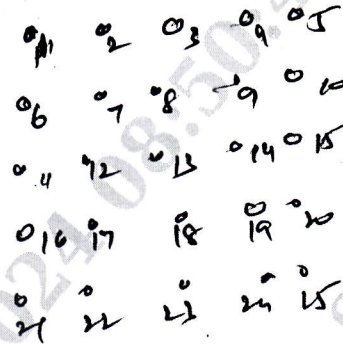 1 2 3 9 5
6 7 8 9 10
11 12 13 14 15
16 17 18 19 20
21 22 23 24 15
024 08:50: